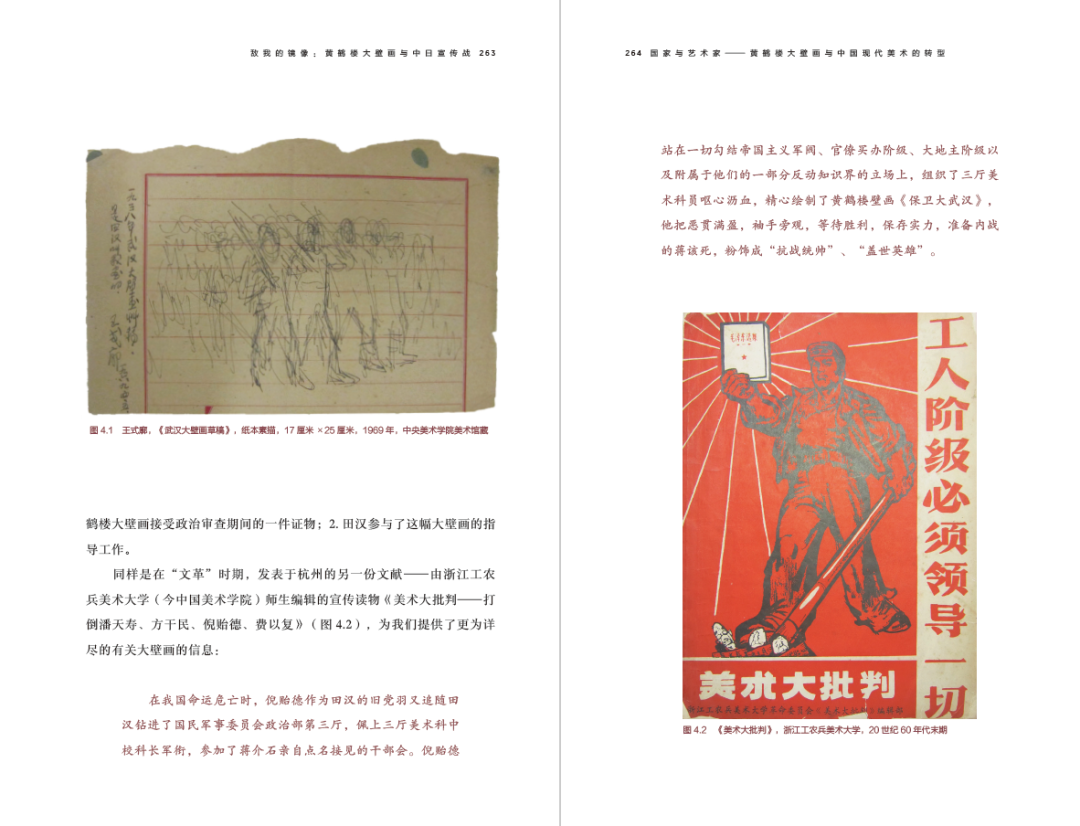 敌我的镜像：黄鹤楼大壁画与中日宣传战 263
一九三八年武汉大壁画草稿，
是田汉
王式廓
图 4.1 王式廓，《武汉大壁画草稿》，纸本素描，17 厘米 × 25 厘米，1969 年，中央美术学院美术馆藏
鹤楼大壁画接受政治审查期间的一件证物；2. 田汉参与了这幅大壁画的指
导工作。
同样是在“文革”时期，发表于杭州的另一份文献——由浙江工农
兵美术大学（今中国美术学院）师生编辑的宣传读物《美术大批判——打
倒潘天寿、方干民、倪贻德、费以复》（图 4.2），为我们提供了更为详
尽的有关大壁画的信息：
在我国命运危亡时，倪贻德作为田汉的旧党羽又追随田
汉钻进了国民军事委员会政治部第三厅，佩上三厅美术科中
校科长军衔，参加了蒋介石亲自点名接见的干部会。倪贻德
264 国家与艺术家——黄鹤楼大壁画与中国现代美术的转型
站在一切勾结帝国主义军阀、官僚买办阶级、大地主阶级以
及附属于他们的一部分反动知识界的立场上，组织了三厅美
术科员呕心沥血，精心绘制了黄鹤楼壁画《保卫大武汉》，
他把恶贯满盈，袖手旁观，等待胜利，保存实力，准备内战
的蒋该死，粉饰成“抗战统帅”、“盖世英雄”。
工人阶级必须领导一切
美术大批判
浙江工农兵美术大学革命委员会《美术大批判》编辑部
图 4.2 《美术大批判》，浙江工农兵美术大学，20 世纪 60 年代末期